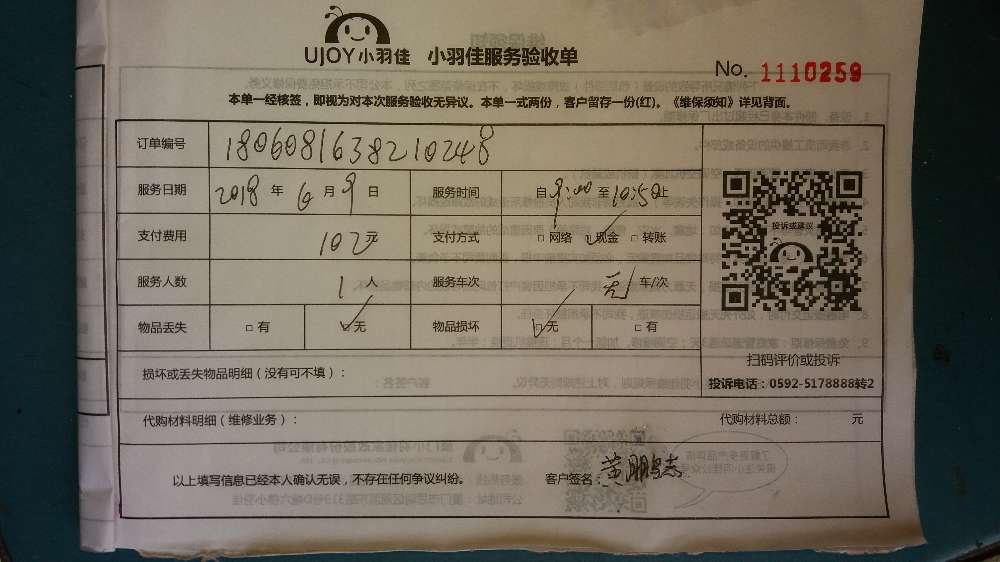 UJOY小羽佳 小羽佳服务验收单
No. 1110259
本单一经核签，即视为对本次服务验收无异议。本单一式两份，客户留存一份(红)。《维保须知》详见背面。
订单编号 1806081638210248
服务日期 2018 年 6 月 9 日 服务时间 自 9:00 至 10:50 止
支付费用 102元 支付方式 □ 网络 ☑ 现金 □ 转账
投诉或建议
服务人数 1 人 服务车次 无 车/次
物品丢失 □ 有 ☑ 无 物品损坏 ☑ 无 □ 有
扫码评价或投诉
损坏或丢失物品明细（没有可不填）：
投诉电话：0592-5178888转2
代购材料明细（维修业务）： 代购材料总额： 元
以上填写信息已经本人确认无误，不存在任何争议纠纷。 客户签名： 黄鹏志